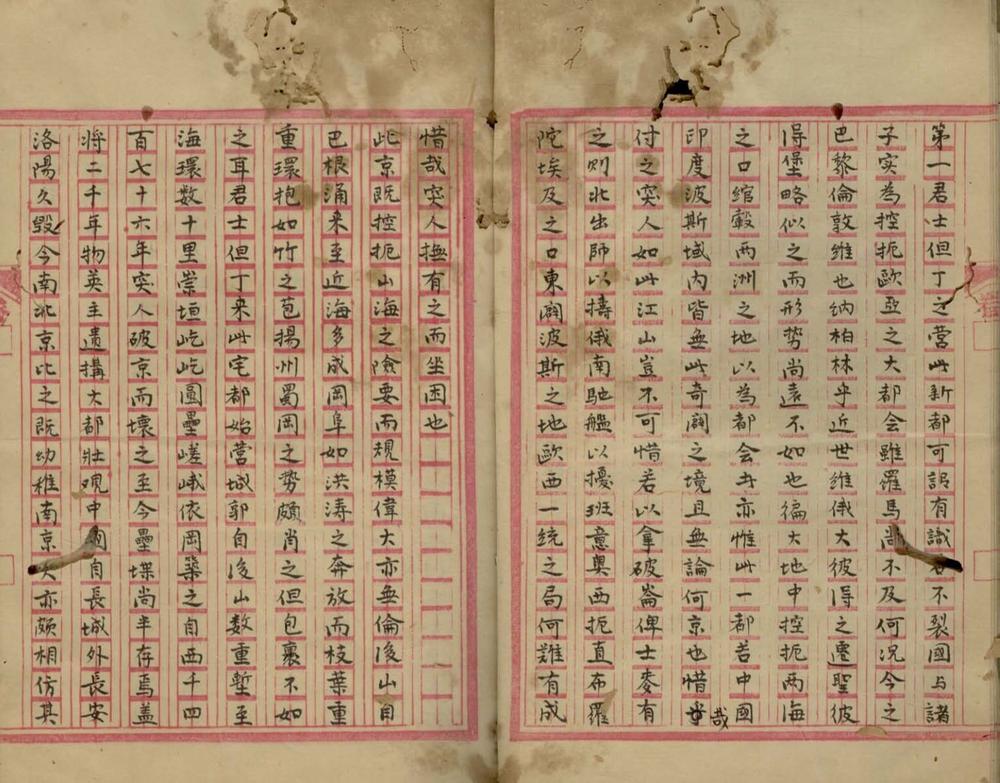 第一君士但丁之營此新都可謂有識不裂國与諸
子实為控扼歐亞之大都会雖羅馬尚不及何况今之
巴黎倫敦維也纳柏林乎近世維俄大彼得之遷聖彼
得堡略似之而形势尚遠不如也徧大地中控扼两海
之口綰轂两洲之地以為都会者亦惟此一都若中國
印度波斯域内皆無此奇闢之境且無論何京也惜哉
付之突人如此江山豈不可惜若以拿破崙俾士麥有
之则北出師以擣俄南馳艦以擾班意奥西扼直布羅
陀埃及之口東闢波斯之地歐西一統之局何難有成
惜哉突人撫有之而坐困也
此京既控扼山海之險要而規模偉大亦無倫後山自
巴根涌来至近海多成岡阜如洪涛之奔放而枝葉重
重環抱如竹之苞揚州蜀岡之势頗肖之但包裹不如
之耳君士但丁来此宅都始营城郭自後山数重塹至
海環数十里崇垣屹屹圓壘嵯峨依岡築之自西千四
百七十六年突人破京而壞之至今壘堞尚半存焉盖
将二千年物英主遺搆大都壯观中國自長城外長安
洛陽久毀今南北京比之既幼稚南京大亦頗相仿其